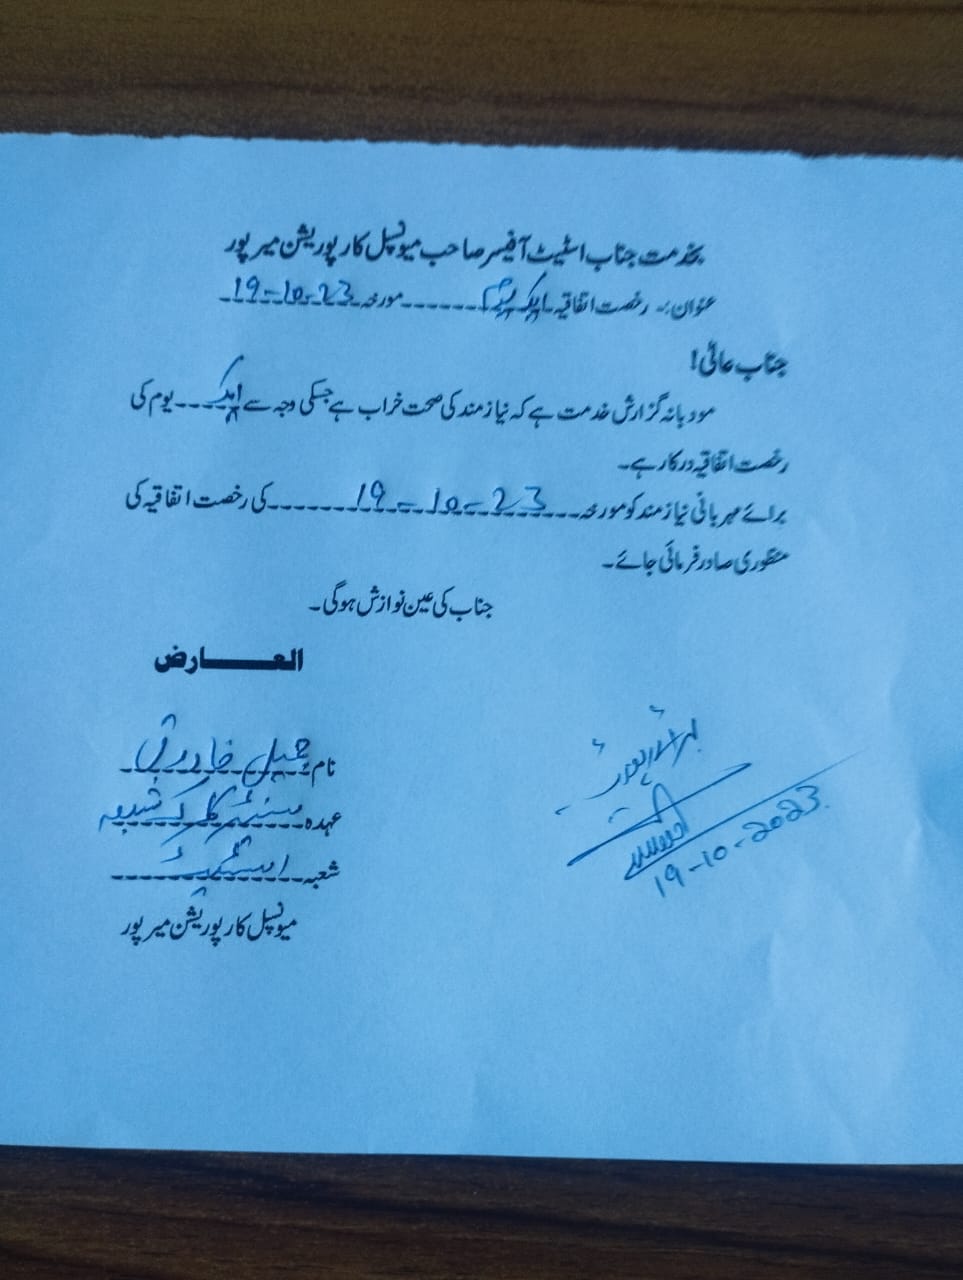 بخدمت جناب اسٹیٹ آفیسر صاحب میونسپل کارپوریشن میرپور
عنوان:۔ رخصت اتفاقیہ ایک یوم مورخہ 19-10-23
جناب عالی!
مودبانہ گزارش خدمت ہے کہ نیازمند کی صحت خراب ہے جسکی وجہ سے ایک یوم کی
رخصت اتفاقیہ درکار ہے۔
برائے مہربانی نیازمند کو مورخہ 19-10-23 کی رخصت اتفاقیہ کی
منظوری صادر فرمائی جائے۔
جناب کی عین نوازش ہوگی۔
العارض
نام جمیل
عہدہ سنیئر کلرک
شعبہ اسٹیٹ
میونسپل کارپوریشن میرپور
19-10-2023